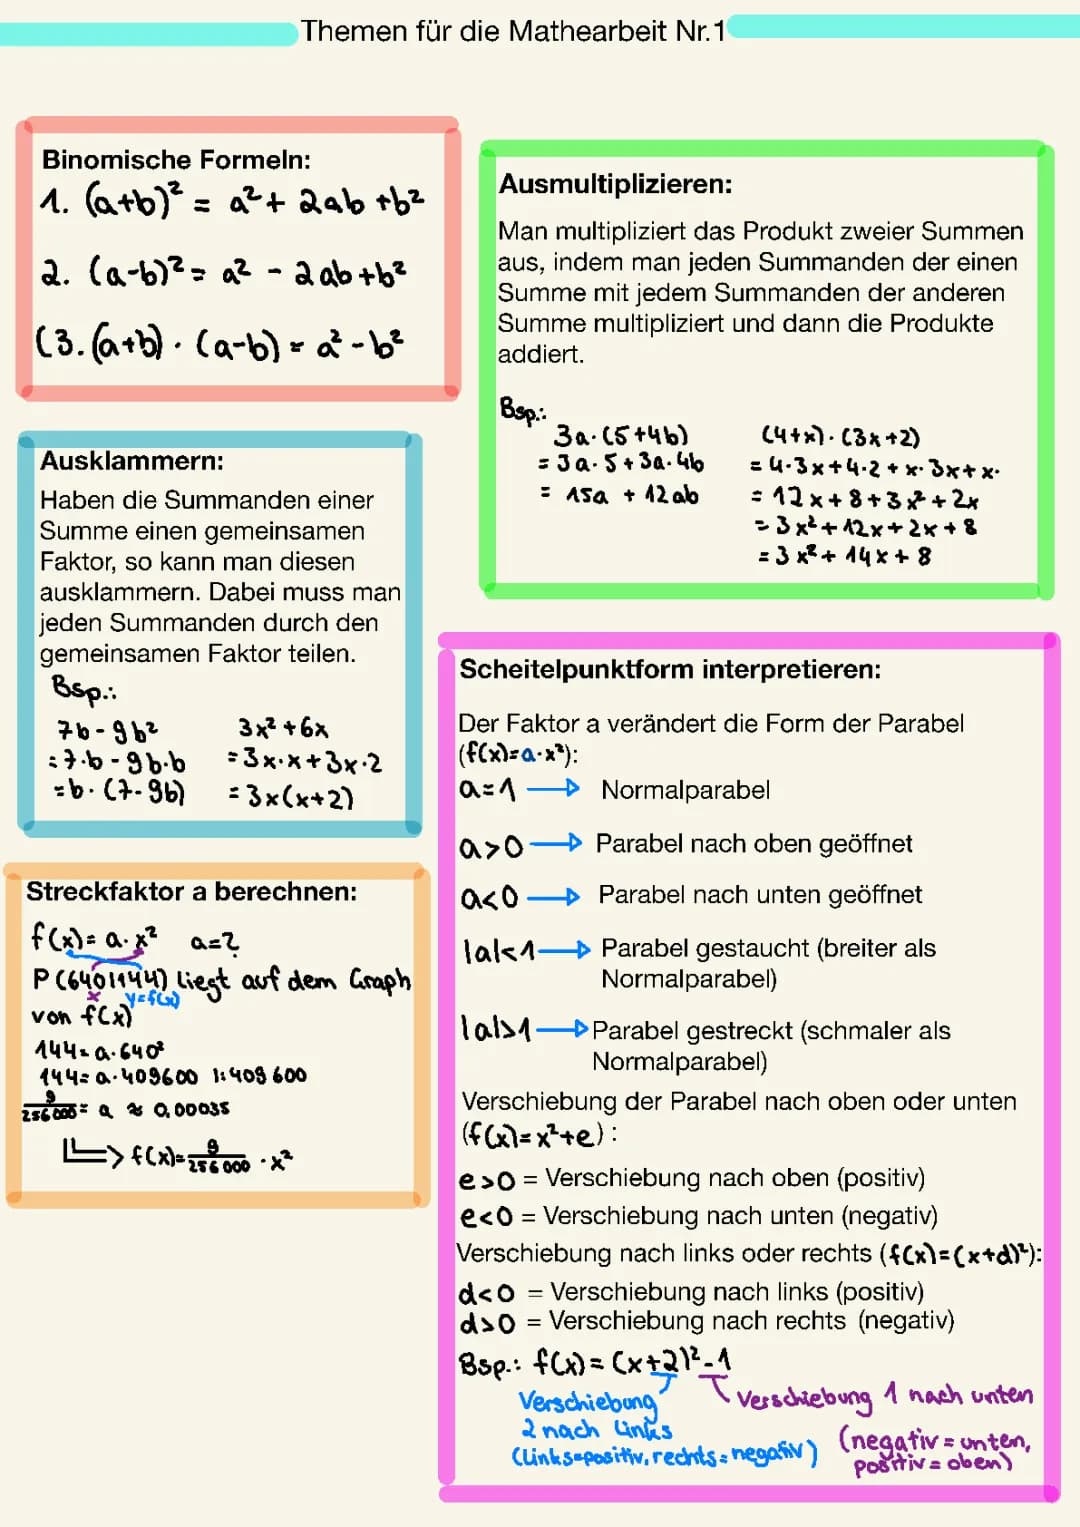 Themen für die Mathearbeit Nr.1
Binomische Formeln:
1. (a+b)² = a² + 2ab +b²
2. (a-b)² = a² - 2ab+b²
(3. (a+b) · (a-b) = a² - b²
Ausmultiplizieren:
Man multipliziert das Produkt zweier Summen
aus, indem man jeden Summanden der einen
Summe mit jedem Summanden der anderen
Summe multipliziert und dann die Produkte
addiert.
Bsp.:
3a·(5+4b)
= 3a·5+3a·4b
= 15a + 12ab
(4+x)·(3x+2)
= 4·3x+4·2+x·3x+x·
= 12x+8+3x²+2x
= 3x²+12x+2x+8
= 3x²+14x+8
Ausklammern:
Haben die Summanden einer
Summe einen gemeinsamen
Faktor, so kann man diesen
ausklammern. Dabei muss man
jeden Summanden durch den
gemeinsamen Faktor teilen.
Bsp.:
7b-9b²
=7·b-9b·b
=b·(7-9b)
3x²+6x
=3x·x+3x·2
=3x(x+2)
Streckfaktor a berechnen:
f(x)= a·x² a=?
P(640|144) liegt auf dem Graph
x y=f(x)
von f(x)
144=a·640²
144=a·409600 |:409600
9/256000 = a ≈ 0,00035
→ f(x)= 9/256000 · x²
Scheitelpunktform interpretieren:
Der Faktor a verändert die Form der Parabel
(f(x)=a·x²):
a=1 → Normalparabel
a>0 → Parabel nach oben geöffnet
a<0 → Parabel nach unten geöffnet
|a|<1 → Parabel gestaucht (breiter als
Normalparabel)
|a|>1 → Parabel gestreckt (schmaler als
Normalparabel)
Verschiebung der Parabel nach oben oder unten
(f(x)=x²+e):
e>0 = Verschiebung nach oben (positiv)
e<0 = Verschiebung nach unten (negativ)
Verschiebung nach links oder rechts (f(x)=(x+d)²):
d<0 = Verschiebung nach links (positiv)
d>0 = Verschiebung nach rechts (negativ)
Bsp.: f(x)=(x+2)²-1
Verschiebung
2 nach links
(links=positiv, rechts=negativ)
Verschiebung 1 nach unten
(negativ=unten,
positiv=oben)